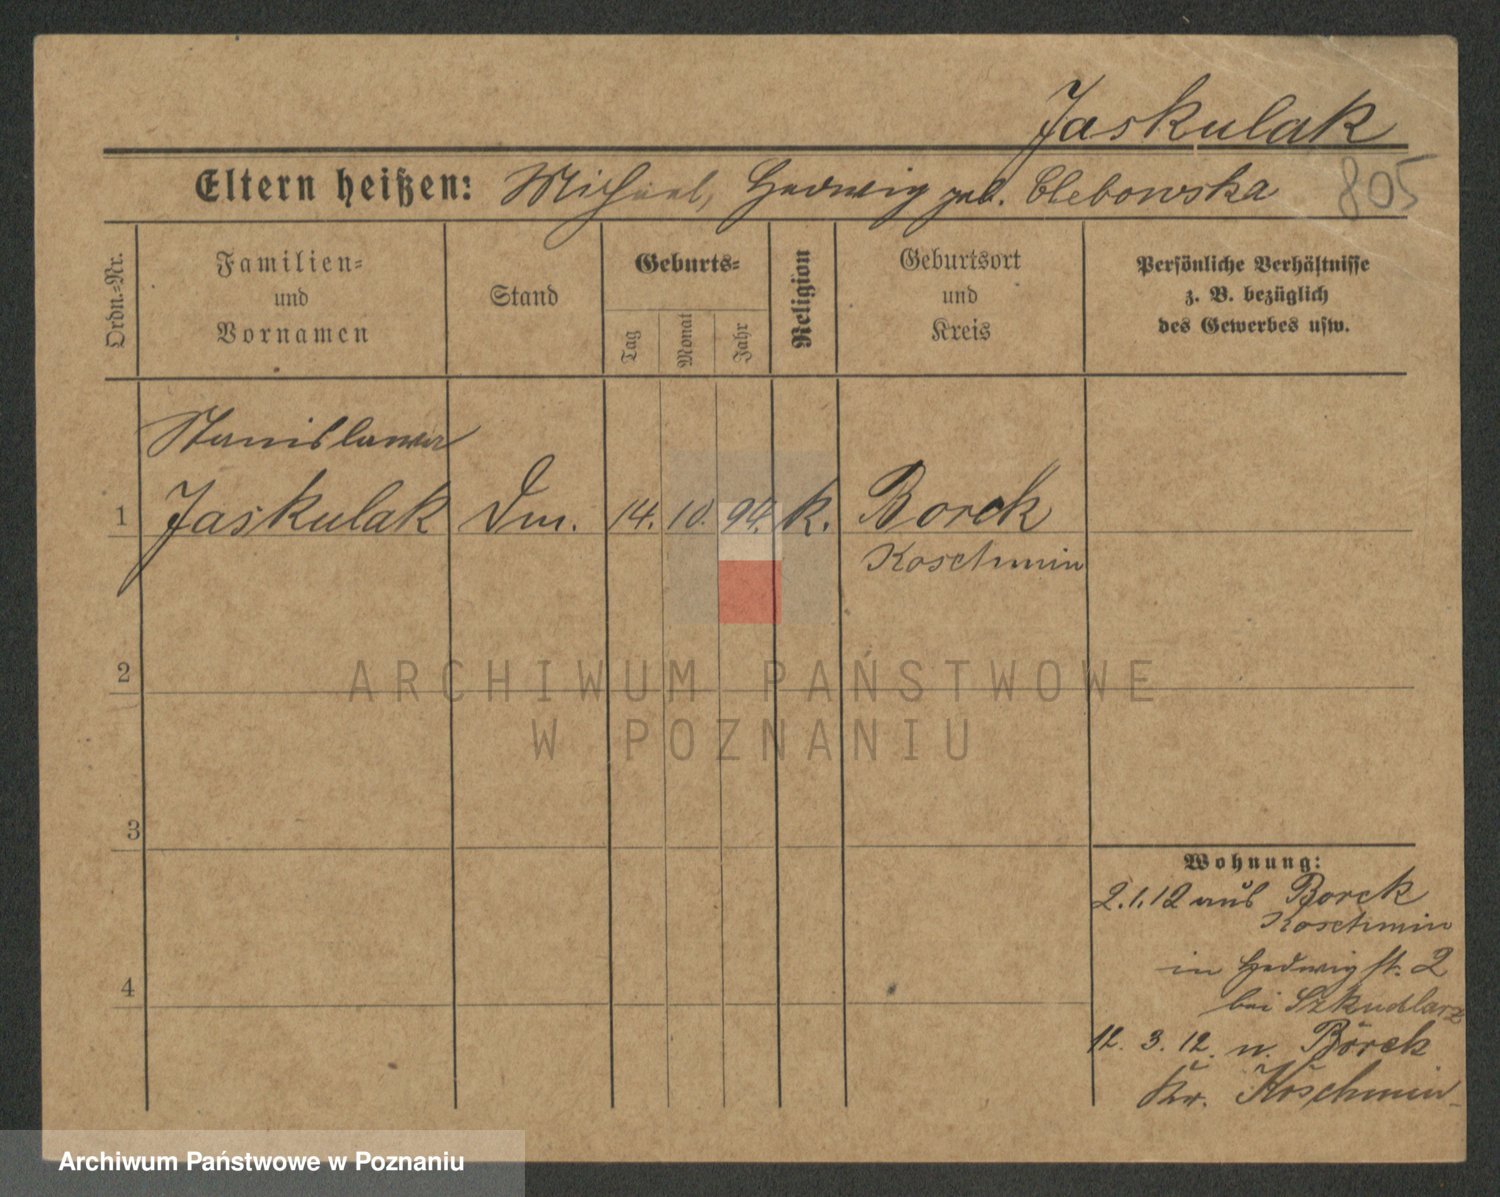 Jaskulak
805
Eltern heißen: Michael, Hedwig geb. Clebowska
Ordn.-Nr.
Familien-
und
Vornamen
Stand
Geburts-
Tag
Monat
Jahr
Religion
Geburtsort
und
Kreis
Persönliche Verhältnisse
z. B. bezüglich
des Gewerbes usw.
Stanislawa
1 Jaskulak Dm. 14. 10. 94. k. Borek
Koschmin
2
3
4
Wohnung:
2.1.12 aus Borek
Koschmin
in Hedwigst. 2
bei Szkudlarz
12. 3. 12. n. Borek
Kr. Koschmin
ARCHIWUM PAŃSTWOWE
W POZNANIU
Archiwum Państwowe w Poznaniu